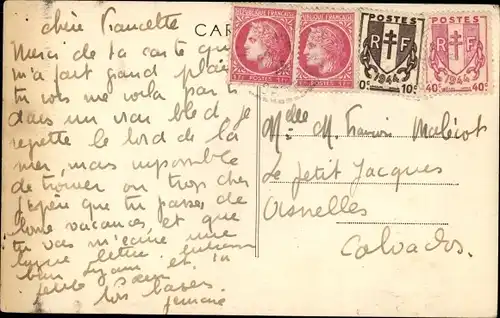 chère Francette
Merci de ta carte qui
m'a fait grand plaisir
tu vois me voila parti
dans un vrai bled, je
regette le bord de la
mer, mais impossible
de trouver ou trop cher
J'espère que tu passes de
bonne vacances, et que
tu vas m'écrire une
lettre
bien et ta
petite
bon baser
CAR
RÉPUBLIQUE FRANÇAISE
POSTES
RÉPUBLIQUE FRANÇAISE
POSTES
POSTES
RF
1944
0c 10c
POSTES
RF
1944
40c 40c
M. Francis Malécot
Le Petit Jacques
Asnelles
Calvados.